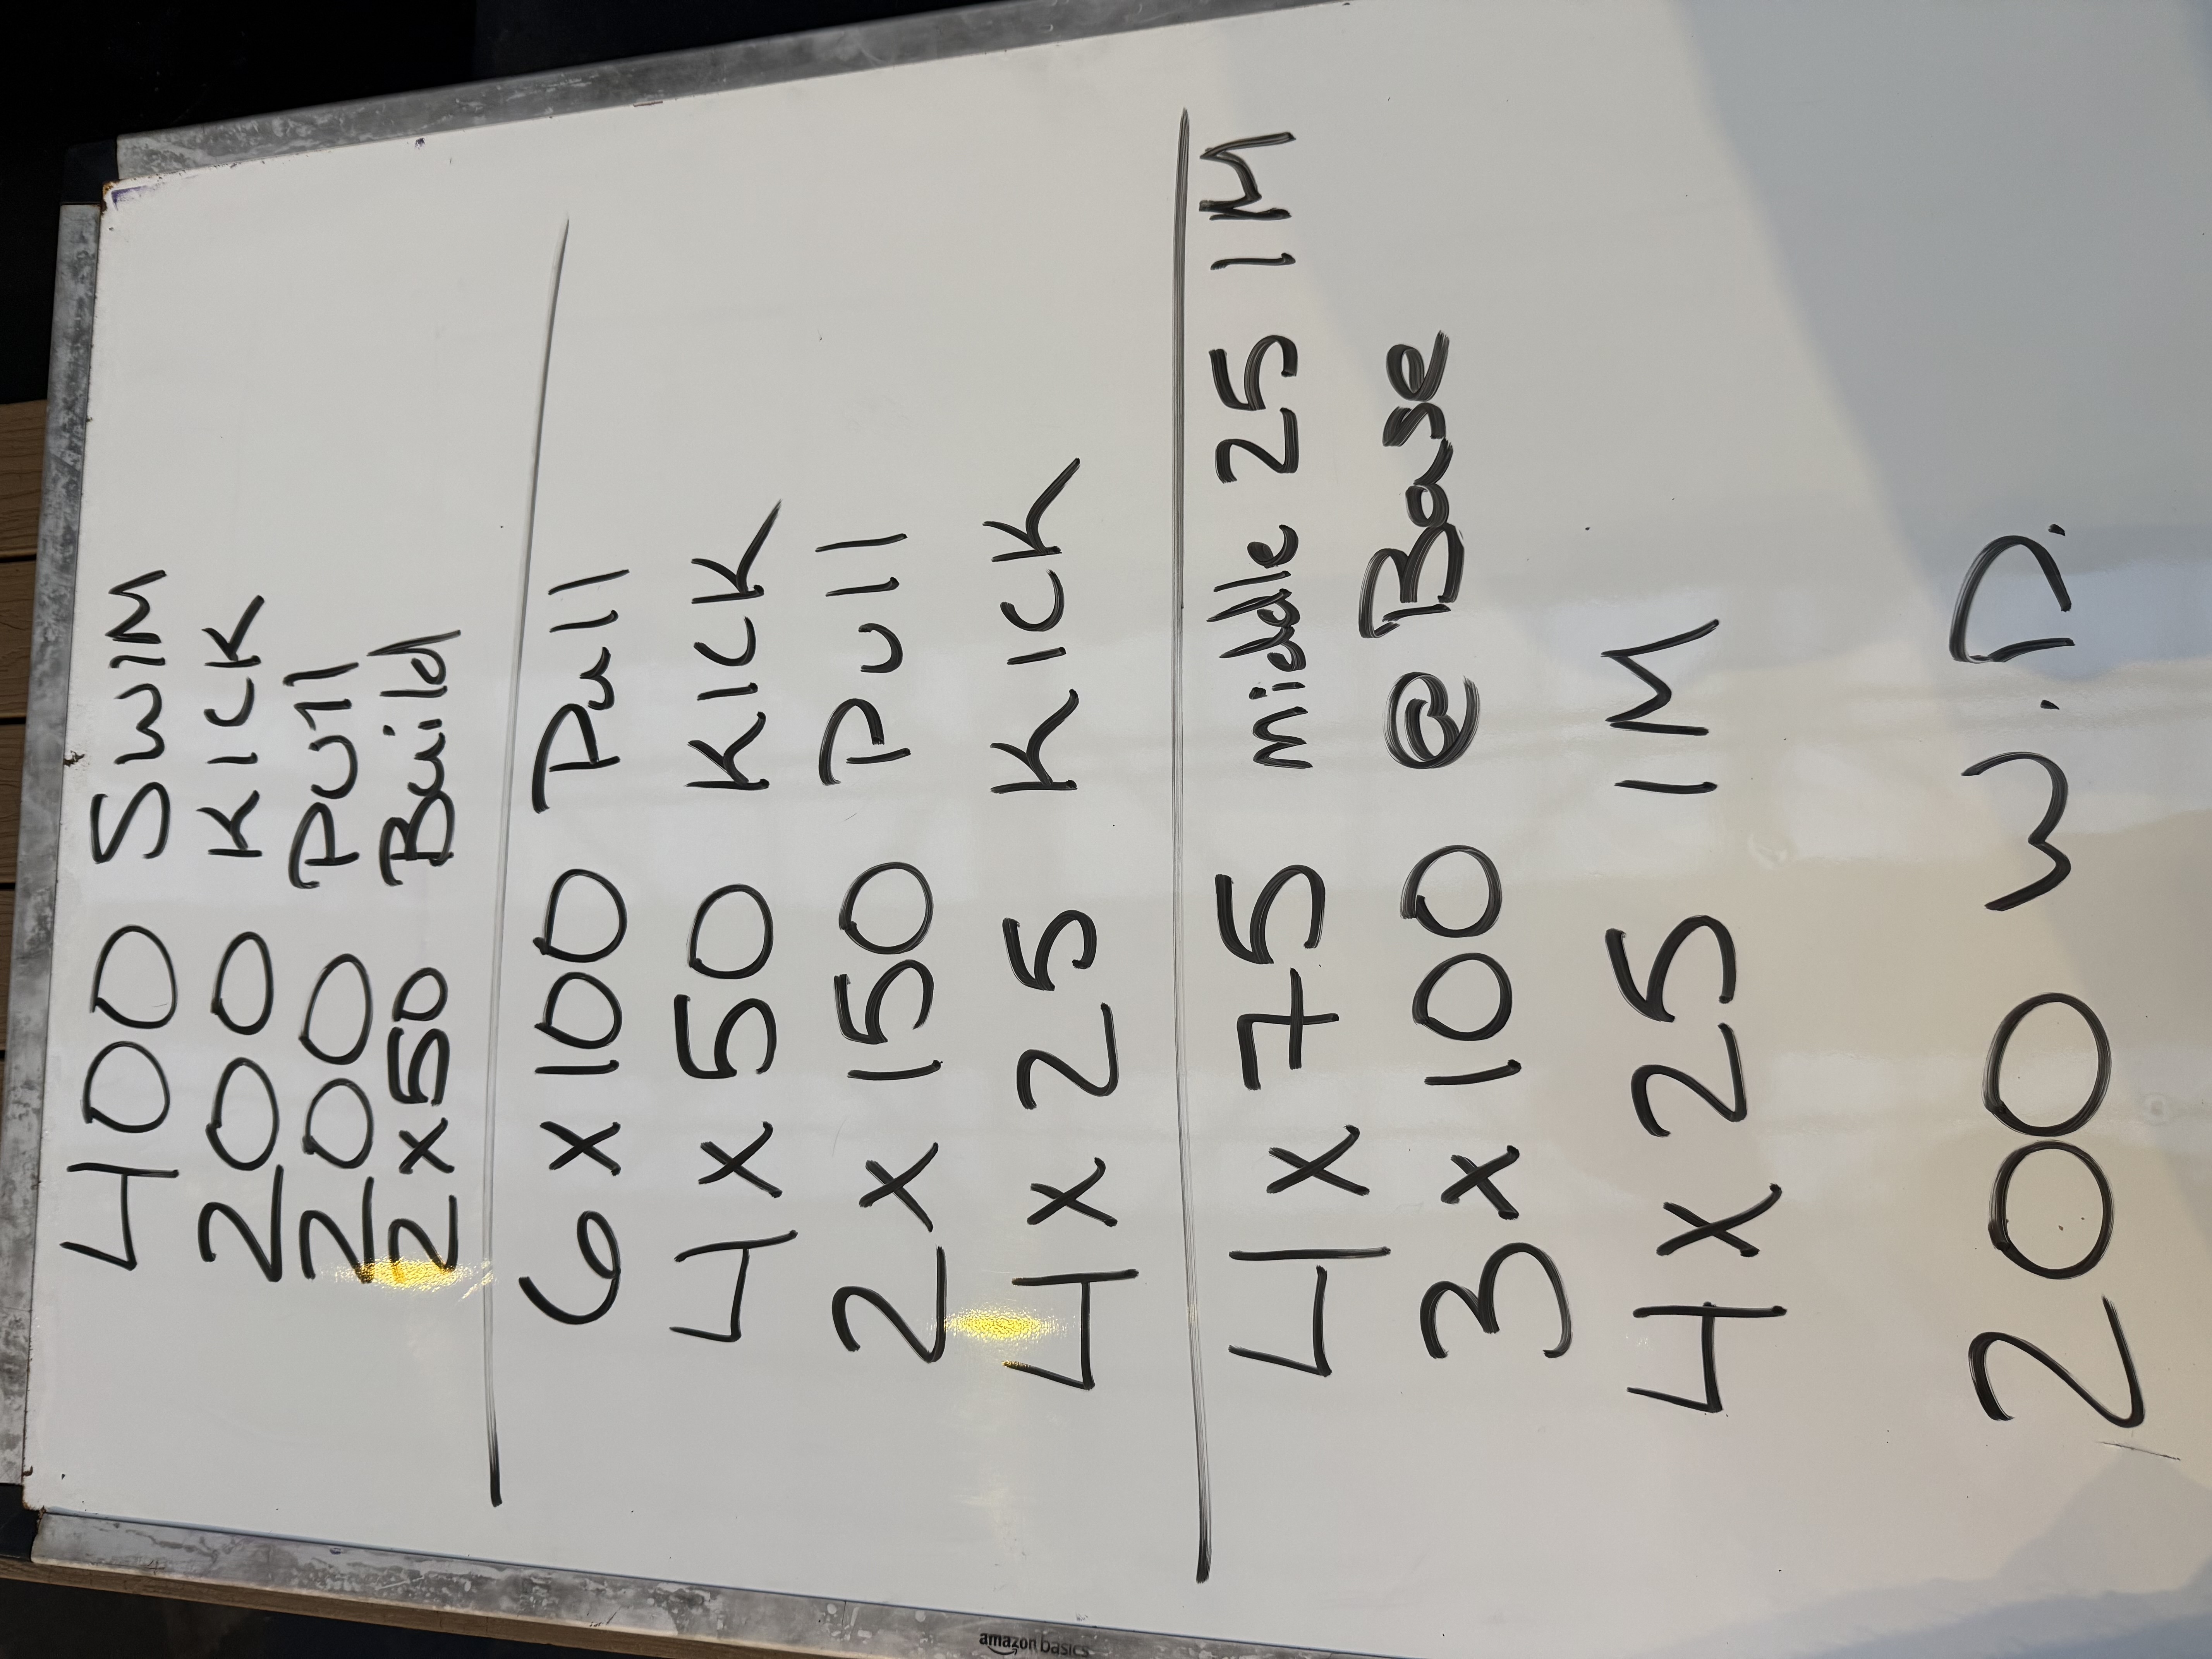 400 SWIM
200 KICK
200 Pull
2x50 Build
6 x 100 Pull
4 x 50 KICK
2 x 150 Pull
4 x 25 KICK
4 x 75 middle 25 IM
3 x 100 @ Base
4 x 25 IM
200 W.D.
amazon basics